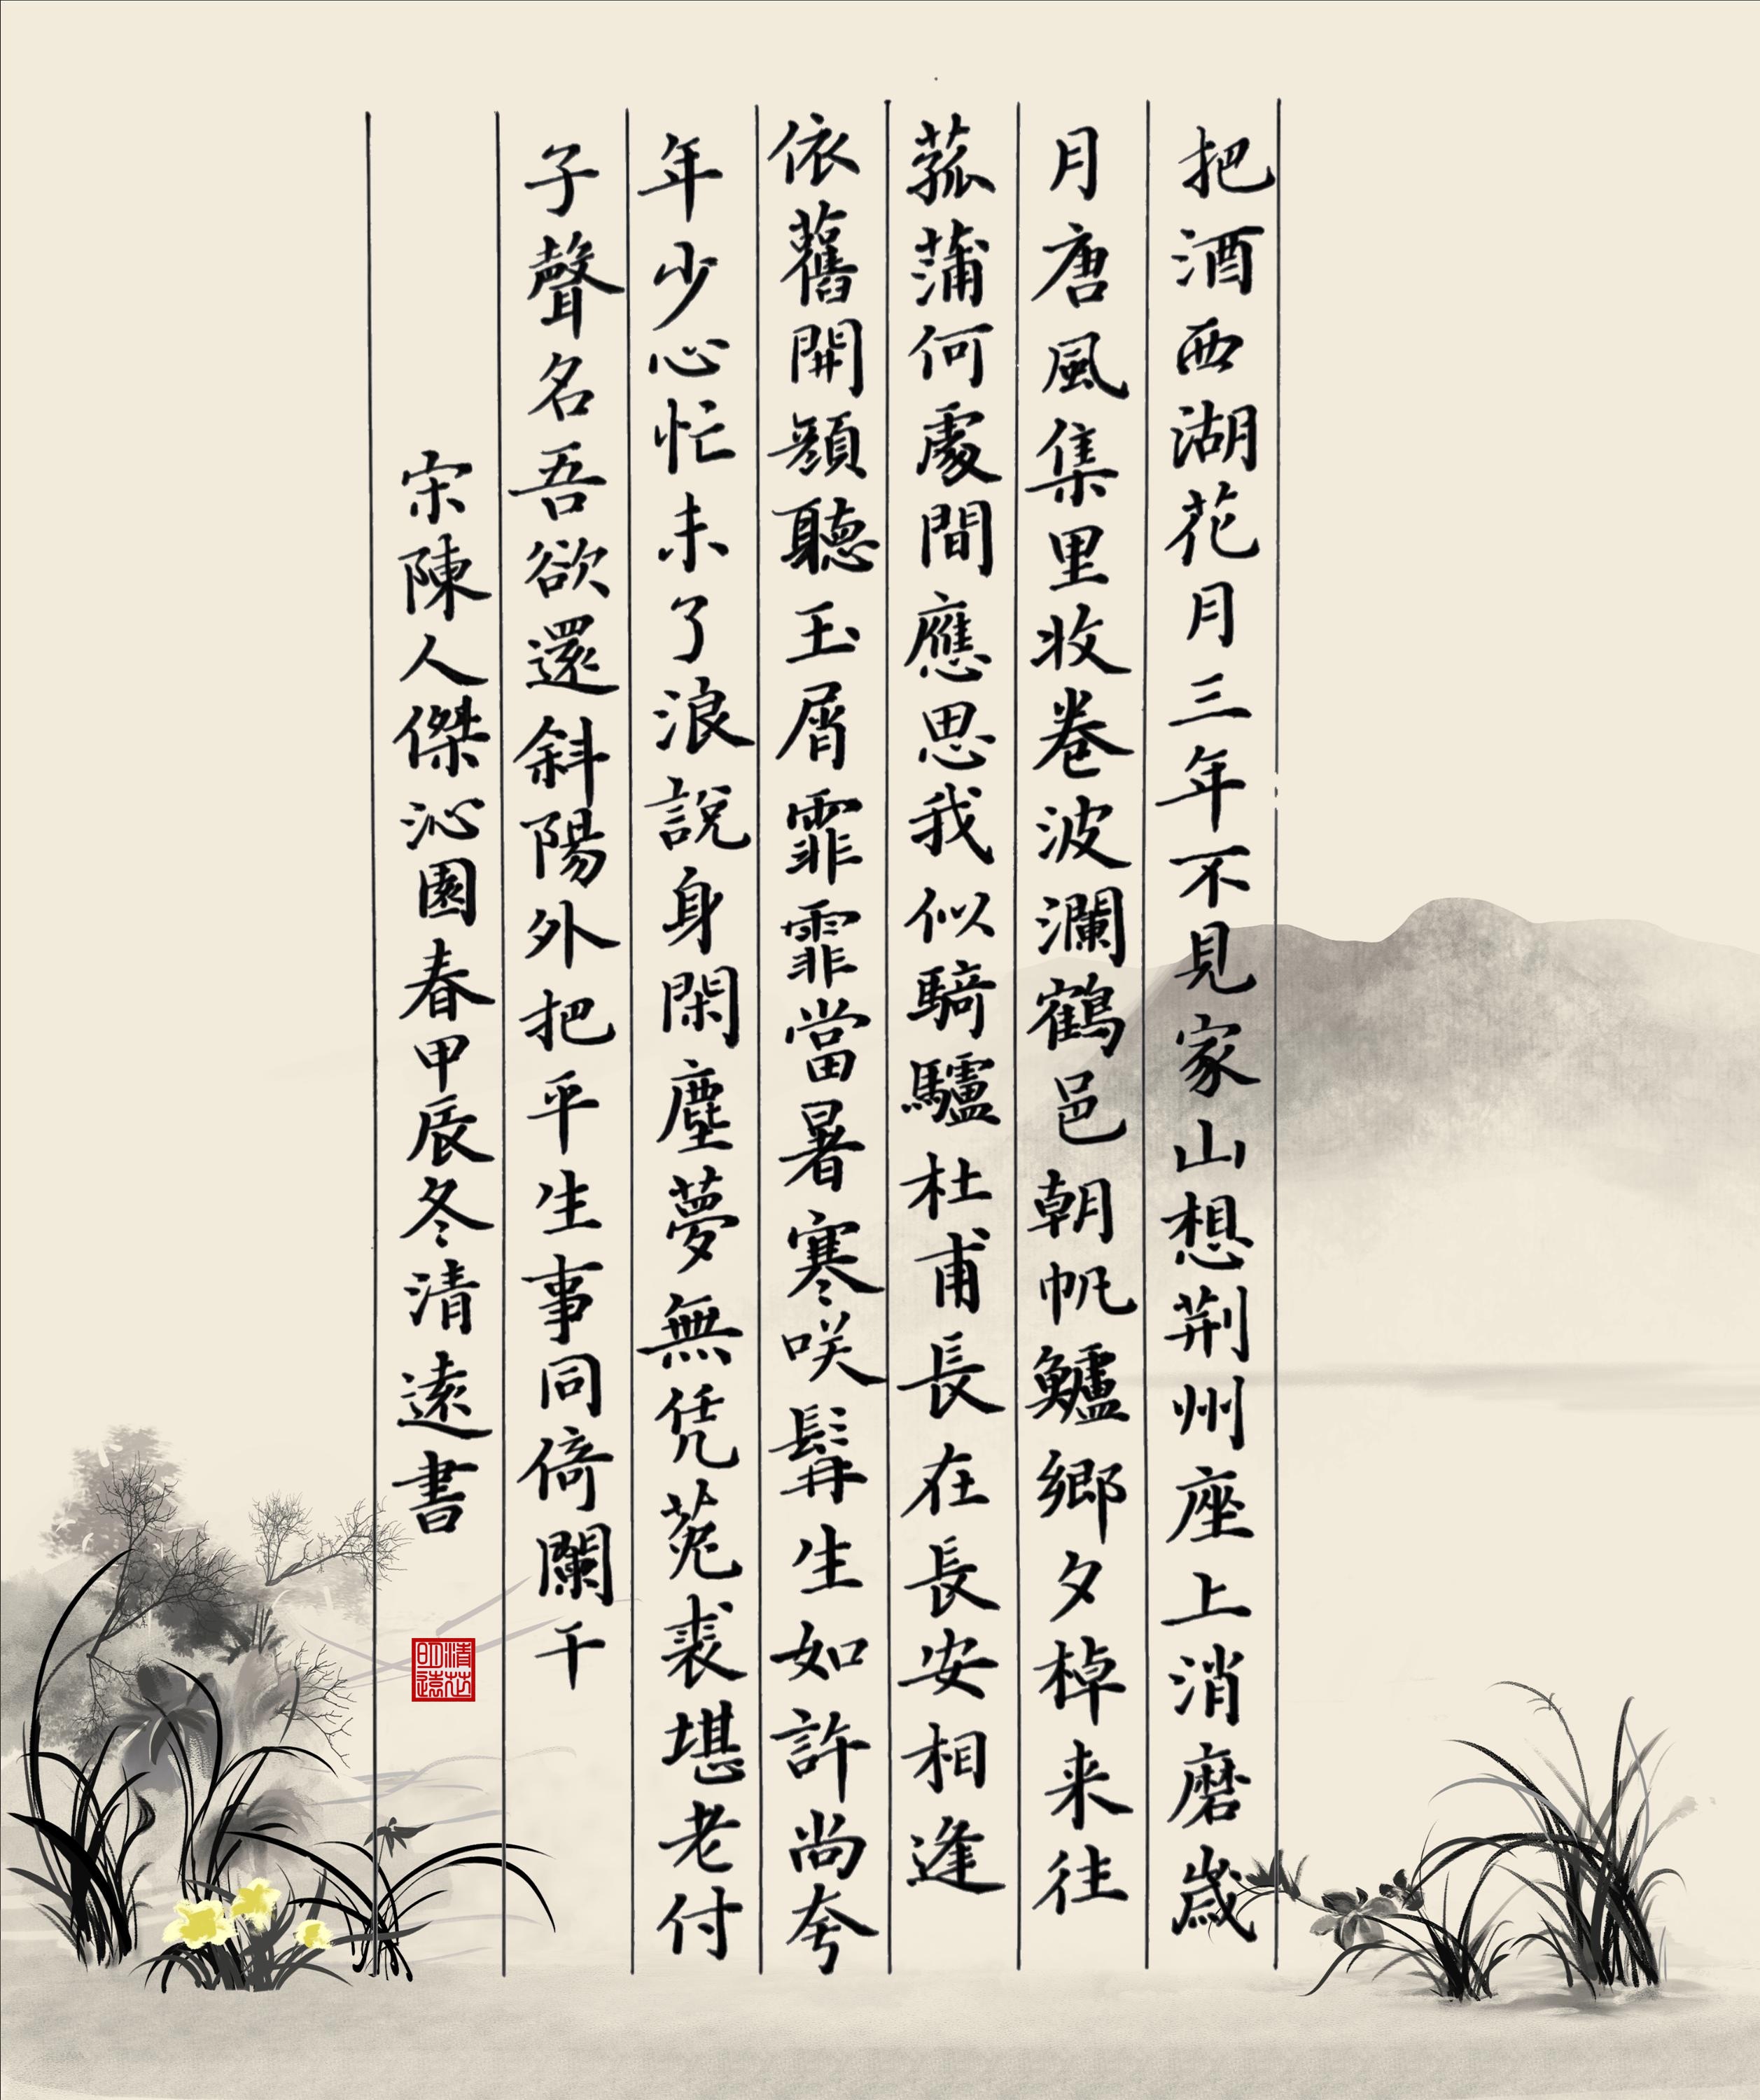 把酒西湖花月三年不見家山想荆州座上消磨歲
月唐風集里收卷波瀾鶴邑朝帆鱸鄉夕棹来往
菰蒲何處間應思我似騎驢杜甫長在長安相逢
依舊開顏聽玉屑霏霏當暑寒咲髯生如許尚夸
年少心忙未了浪說身閑塵夢無凭菟裘堪老付
子聲名吾欲還斜陽外把平生事同倚闌干
宋陳人傑沁園春甲辰冬清遠書